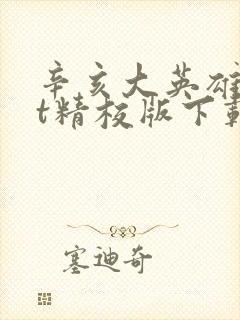 辛亥大英雄
t精校版下载
塞迪奇